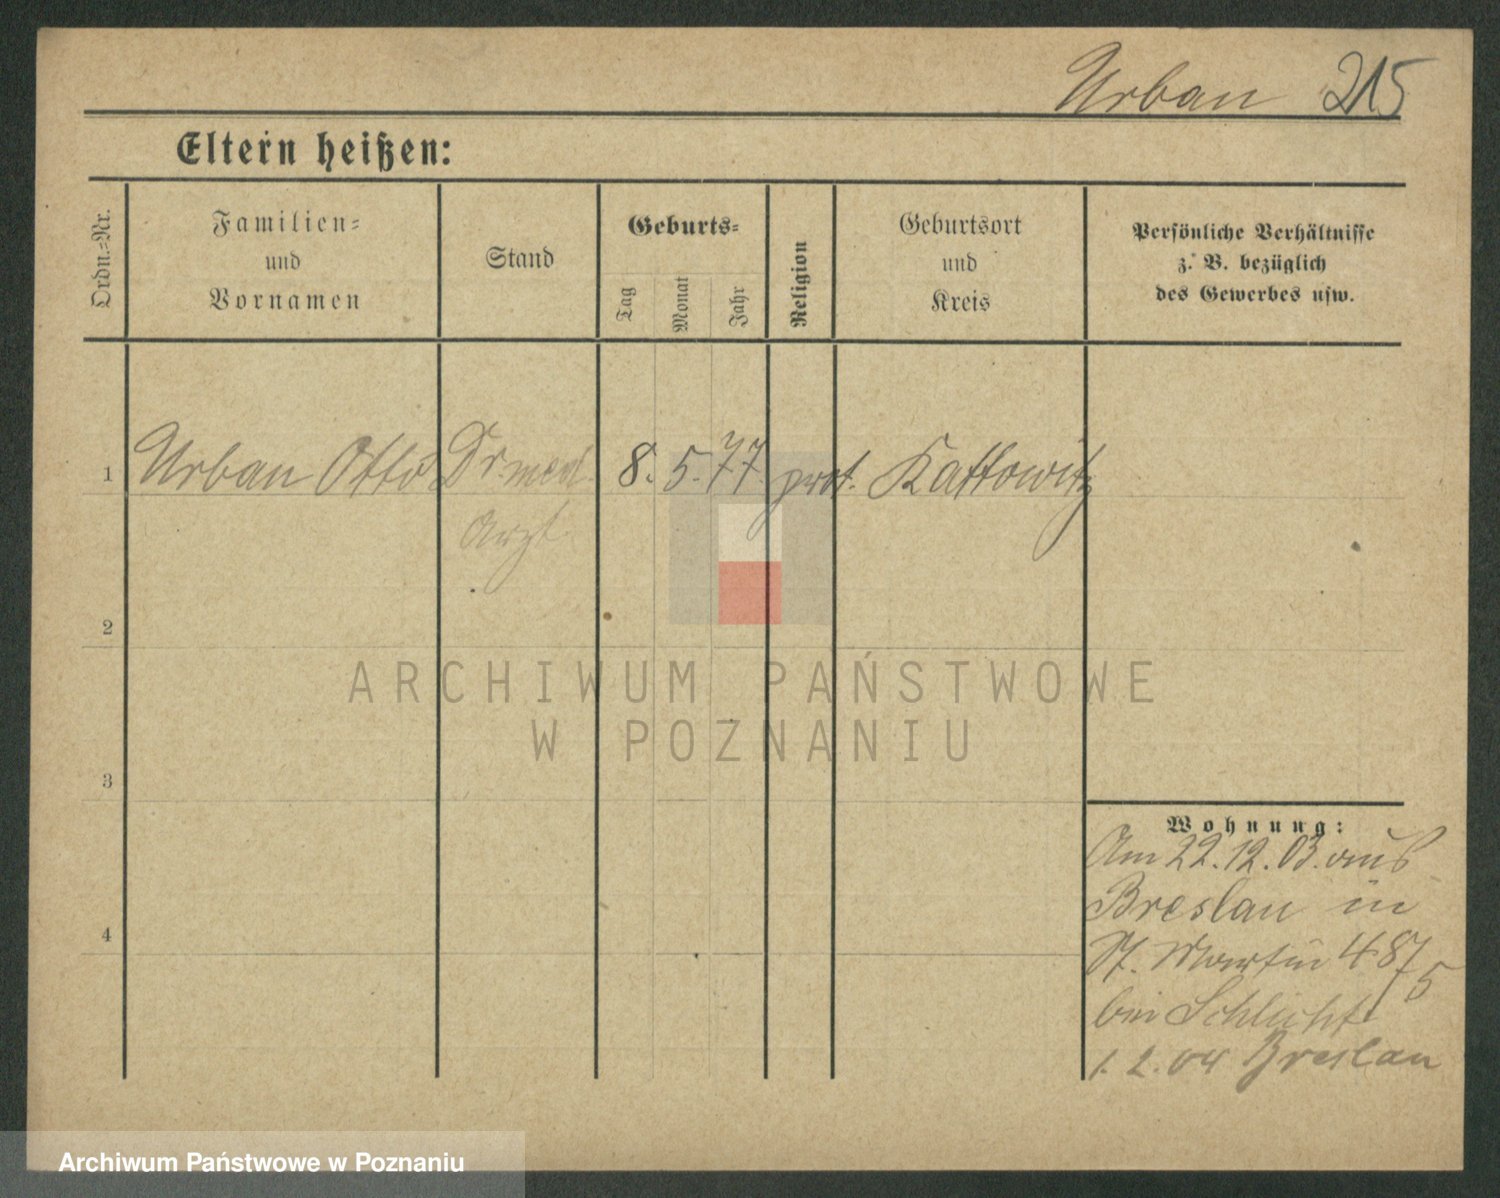 Urban 215
Eltern heißen:
Ordn.-Nr.
Familien-
und
Vornamen
Stand
Geburts-
Tag
Monat
Jahr
Religion
Geburtsort
und
Kreis
Persönliche Verhältnisse
z. B. bezüglich
des Gewerbes usw.
1 Urban Otto Dr. med. 8. 5. 77. prot. Kattowitz
Arzt
2
3
4
ARCHIWUM PAŃSTWOWE
W POZNANIU
Wohnung:
Am 22.12.03. aus
Breslau in
St. Martin 48
bei Schlicht
1. 2. 04 Breslau
Archiwum Państwowe w Poznaniu